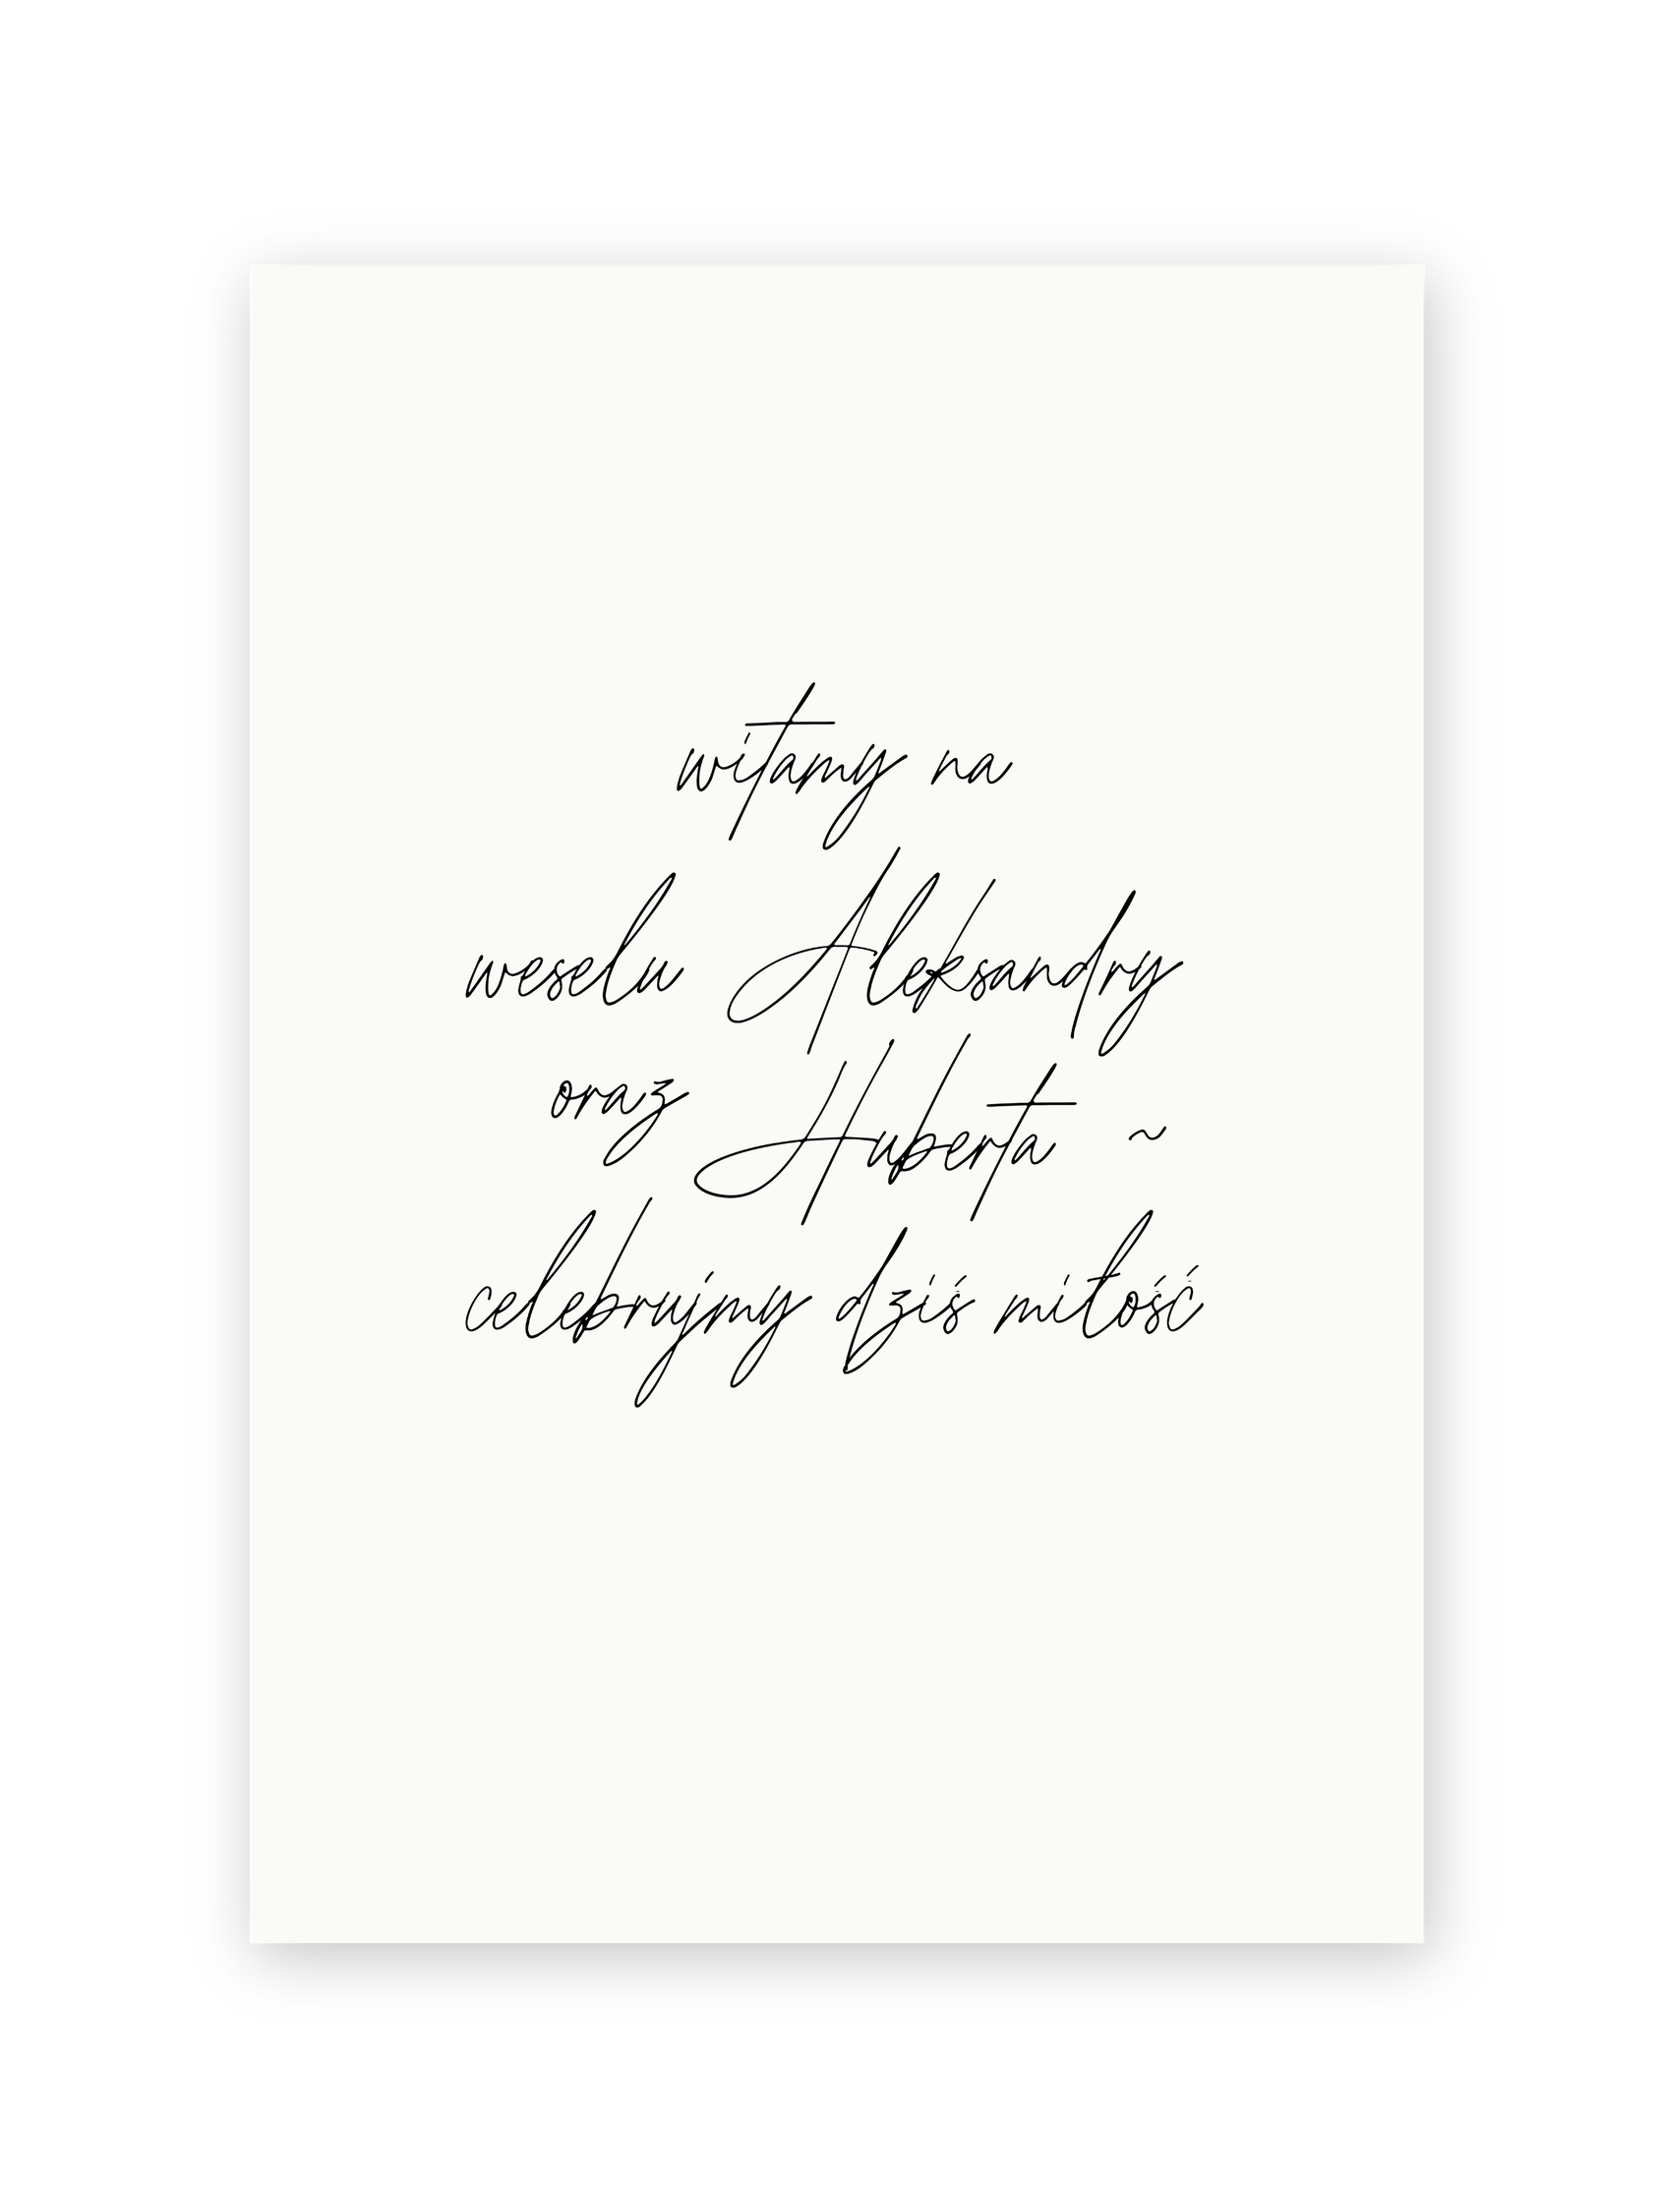 witamy na
weselu Aleksandry
oraz Huberta ~
celebrujmy dziś miłość